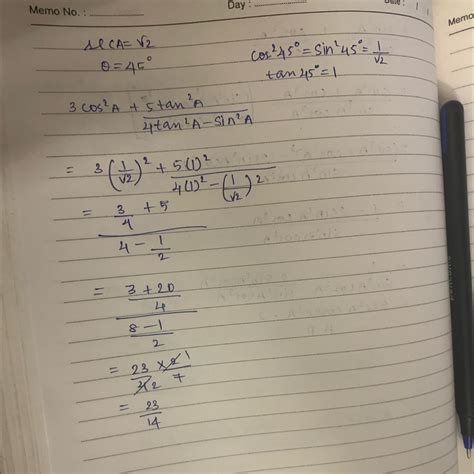 Memo No. :
Day :
Date : / /
Memo
sec A = √2
θ = 45°
cos²45° = sin²45° = 1/√2
tan 45° = 1
3cos²A + 5tan²A
4tan²A - sin²A
= 3(1/√2)² + 5(1)²
4(1)² - (1/√2)²
= 3/4 + 5
4 - 1/2
= 3 + 20
4
8 - 1
2
= 23/4 2 × 2 1/7
= 23/14